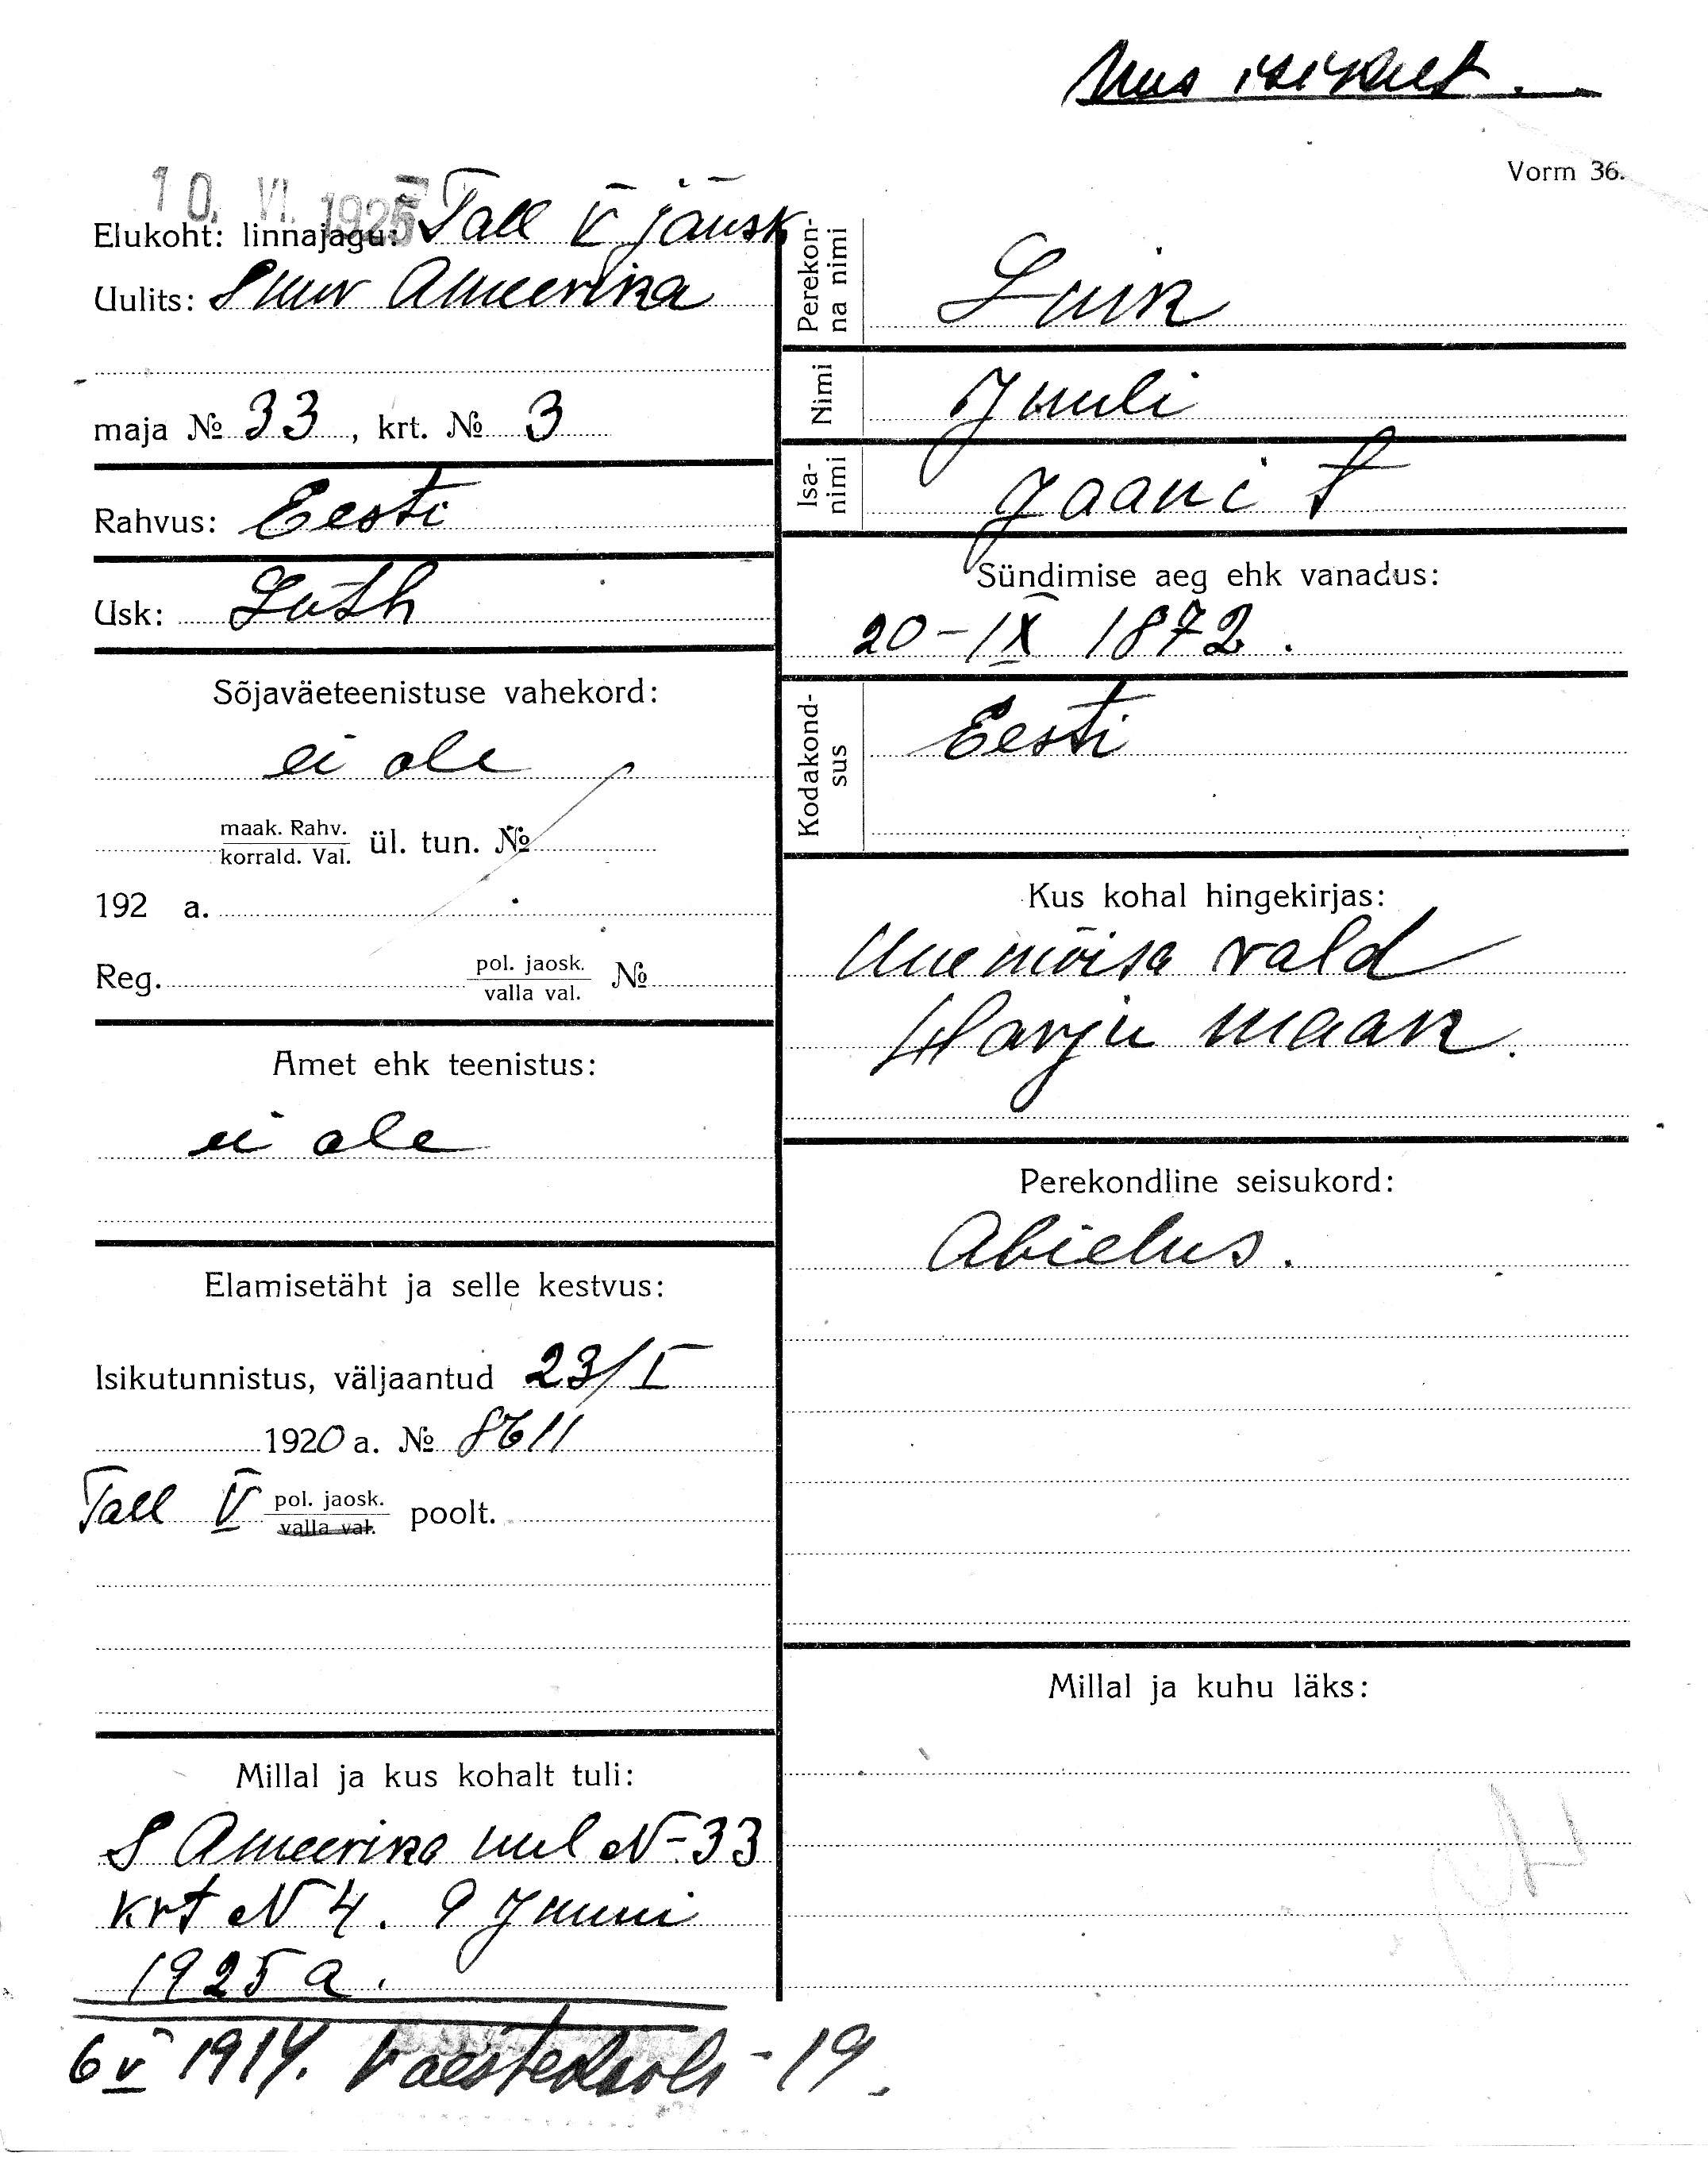 Uus isikleht.
Vorm 36.
10. VI. 1925
Elukoht: linnajagu: Tall V jausk
Uulits: Suur Ameerika
maja № 33, krt. № 3
Rahvus: Eesti
Usk: Luth
Sõjaväeteenistuse vahekord:
ei ole
maak. Rahv.
korrald. Val. ül. tun. №
192 a.
Reg. pol. jaosk.
valla val. №
Amet ehk teenistus:
ei ole
Elamisetäht ja selle kestvus:
Isikutunnistus, väljaantud 23/I
1920 a. № 8611
Tall V pol. jaosk.
valla val. poolt.
Millal ja kus kohalt tuli:
S Ameerika uul N-33
krt N 4. 9 Juuni
1925 a.
6 V 1914. Vaestekooli-19.
Perekon-
na nimi
Luik
Nimi Juuli
Isa-
nimi
Jaani t
Sündimise aeg ehk vanadus:
20-IX 1872.
Kodakond-
sus
Eesti
Kus kohal hingekirjas:
Uuemõisa vald
Harju maak.
Perekondline seisukord:
Abielus.
Millal ja kuhu läks: